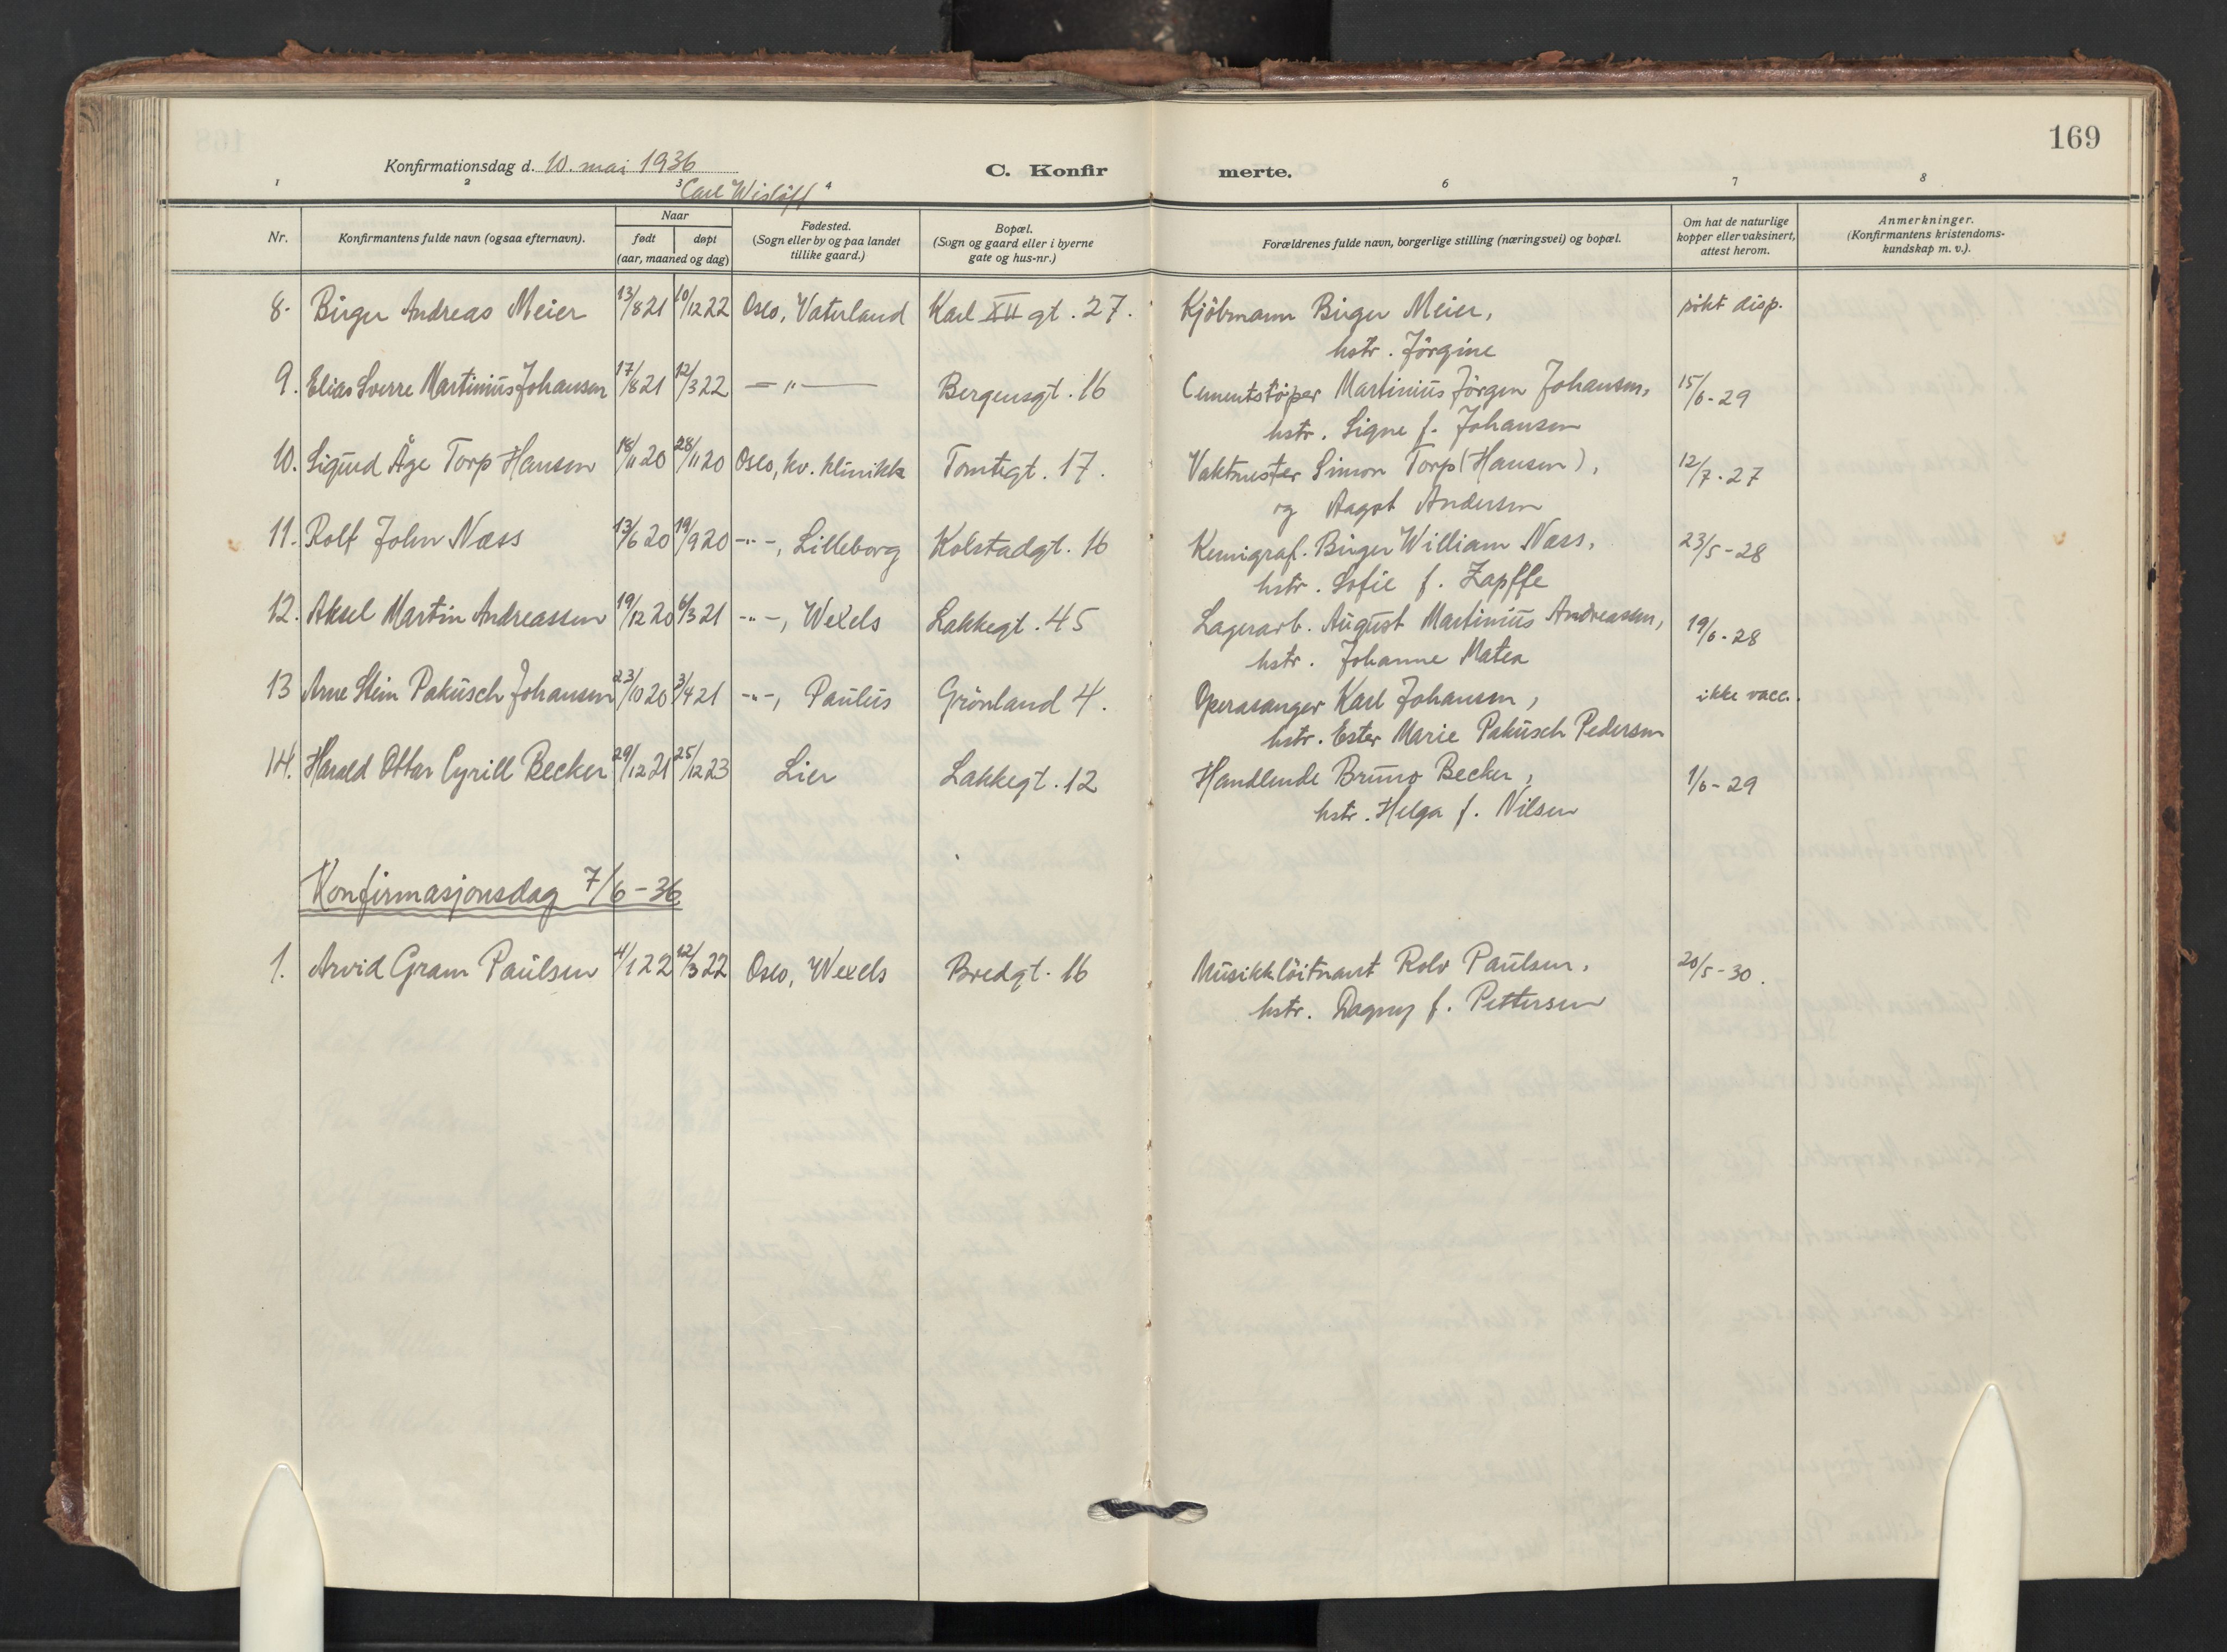 169
Konfirmationsdag d. 10. mai 1936
C. Konfirmerte.
Carl Wisløff
1 2 3 4 6 7 8
Nr. Konfirmantens fulde navn (ogsaa efternavn). Naar født døpt (aar, maaned og dag) Fødested. (Sogn eller by og paa landet tillike gaard.) Bopæl. (Sogn og gaard eller i byerne gate og hus-nr.) Forældrenes fulde navn, borgerlige stilling (næringsvei) og bopæl. Om hat de naturlige kopper eller vaksinert, attest herom. Anmerkninger. (Konfirmantens kristendoms-kundskap m. v.).
8. Birger Andreas Meier 13/8 21 10/12 22 Oslo, Vaterland Karl XII gt. 27. Kjöbmann Birger Meier, søkt disp.
hstr. Jörgine
9. Elias Sverre Martinius Johansen 17/8 21 12/3 22 —"— Bergensgt. 16 Cementstøper Martinius Jörgen Johansen, 15/6-29
hstr. Signe f. Johansen
10. Sigurd Åge Torp Hansen 18/11 20 28/11 20 Oslo, kv. klinikk Tomtegt. 17. Vaktmester Simon Torp (Hansen), 12/7-27
og Aagot Andersen
11. Rolf John Næss 13/6 20 19/9 20 -"-, Lilleborg Kolstadgt. 16 Kemigraf. Birger William Næss, 23/5-28
hstr. Sofie f. Zapffe
12. Aksel Martin Andreassen 19/12 20 6/3 21 -"-, Wexels Lakkegt. 45 Lagerarb. August Martinius Andreassen, 19/6-28
hstr. Johanne Matea
13 Arne Stein Pakusch Johansen 23/10 20 3/4 21 -"-, Paulus Grönland 4. Operasanger Karl Johansen, ikke vacc.
hstr. Ester Marie Pakusch Pedersen
14. Harald Ottar Cyrill Becker 29/12 21 25/12 23 Lier Lakkegt. 12 Handlende Bruno Becker, 1/6-29
hstr. Helga f. Nilsen
Konfirmasjonsdag 7/6-36
1. Arvid Gram Paulsen 4/1 22 12/3 22 Oslo, Wexels Bredgt. 16 Musikklöitnant Rolv Paulsen, 20/5-30.
hstr. Dagny f. Pettersen